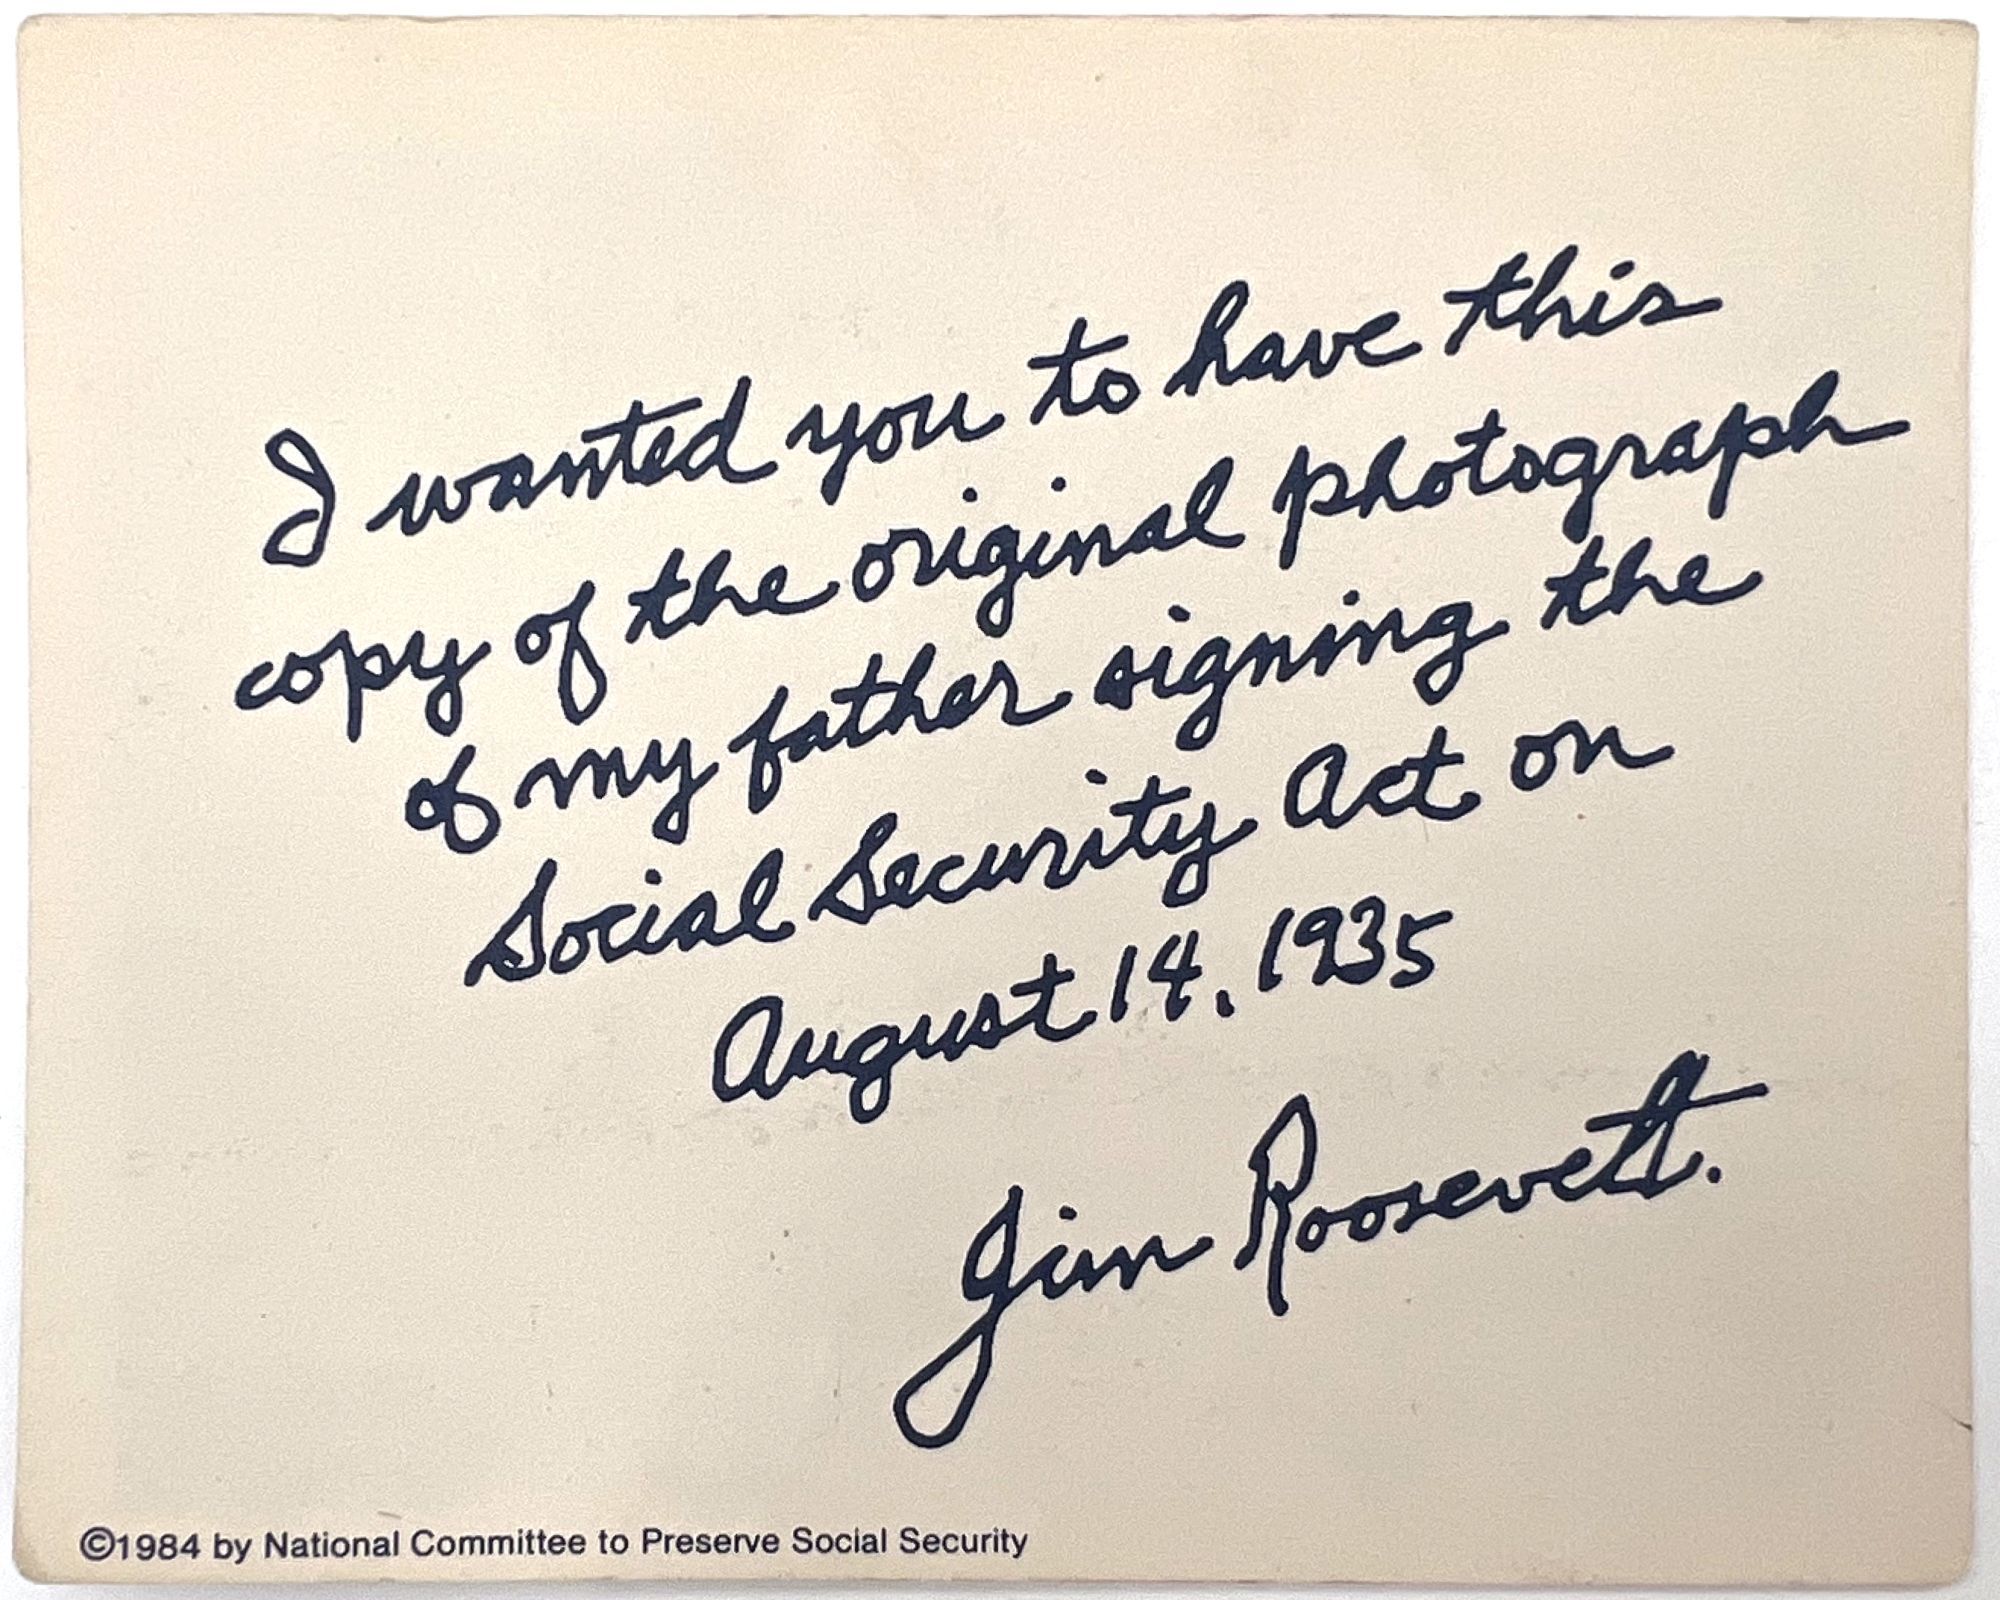 I wanted you to have this
copy of the original photograph
of my father signing the
Social Security Act on
August 14, 1935
Jim Roosevelt.
©1984 by National Committee to Preserve Social Security